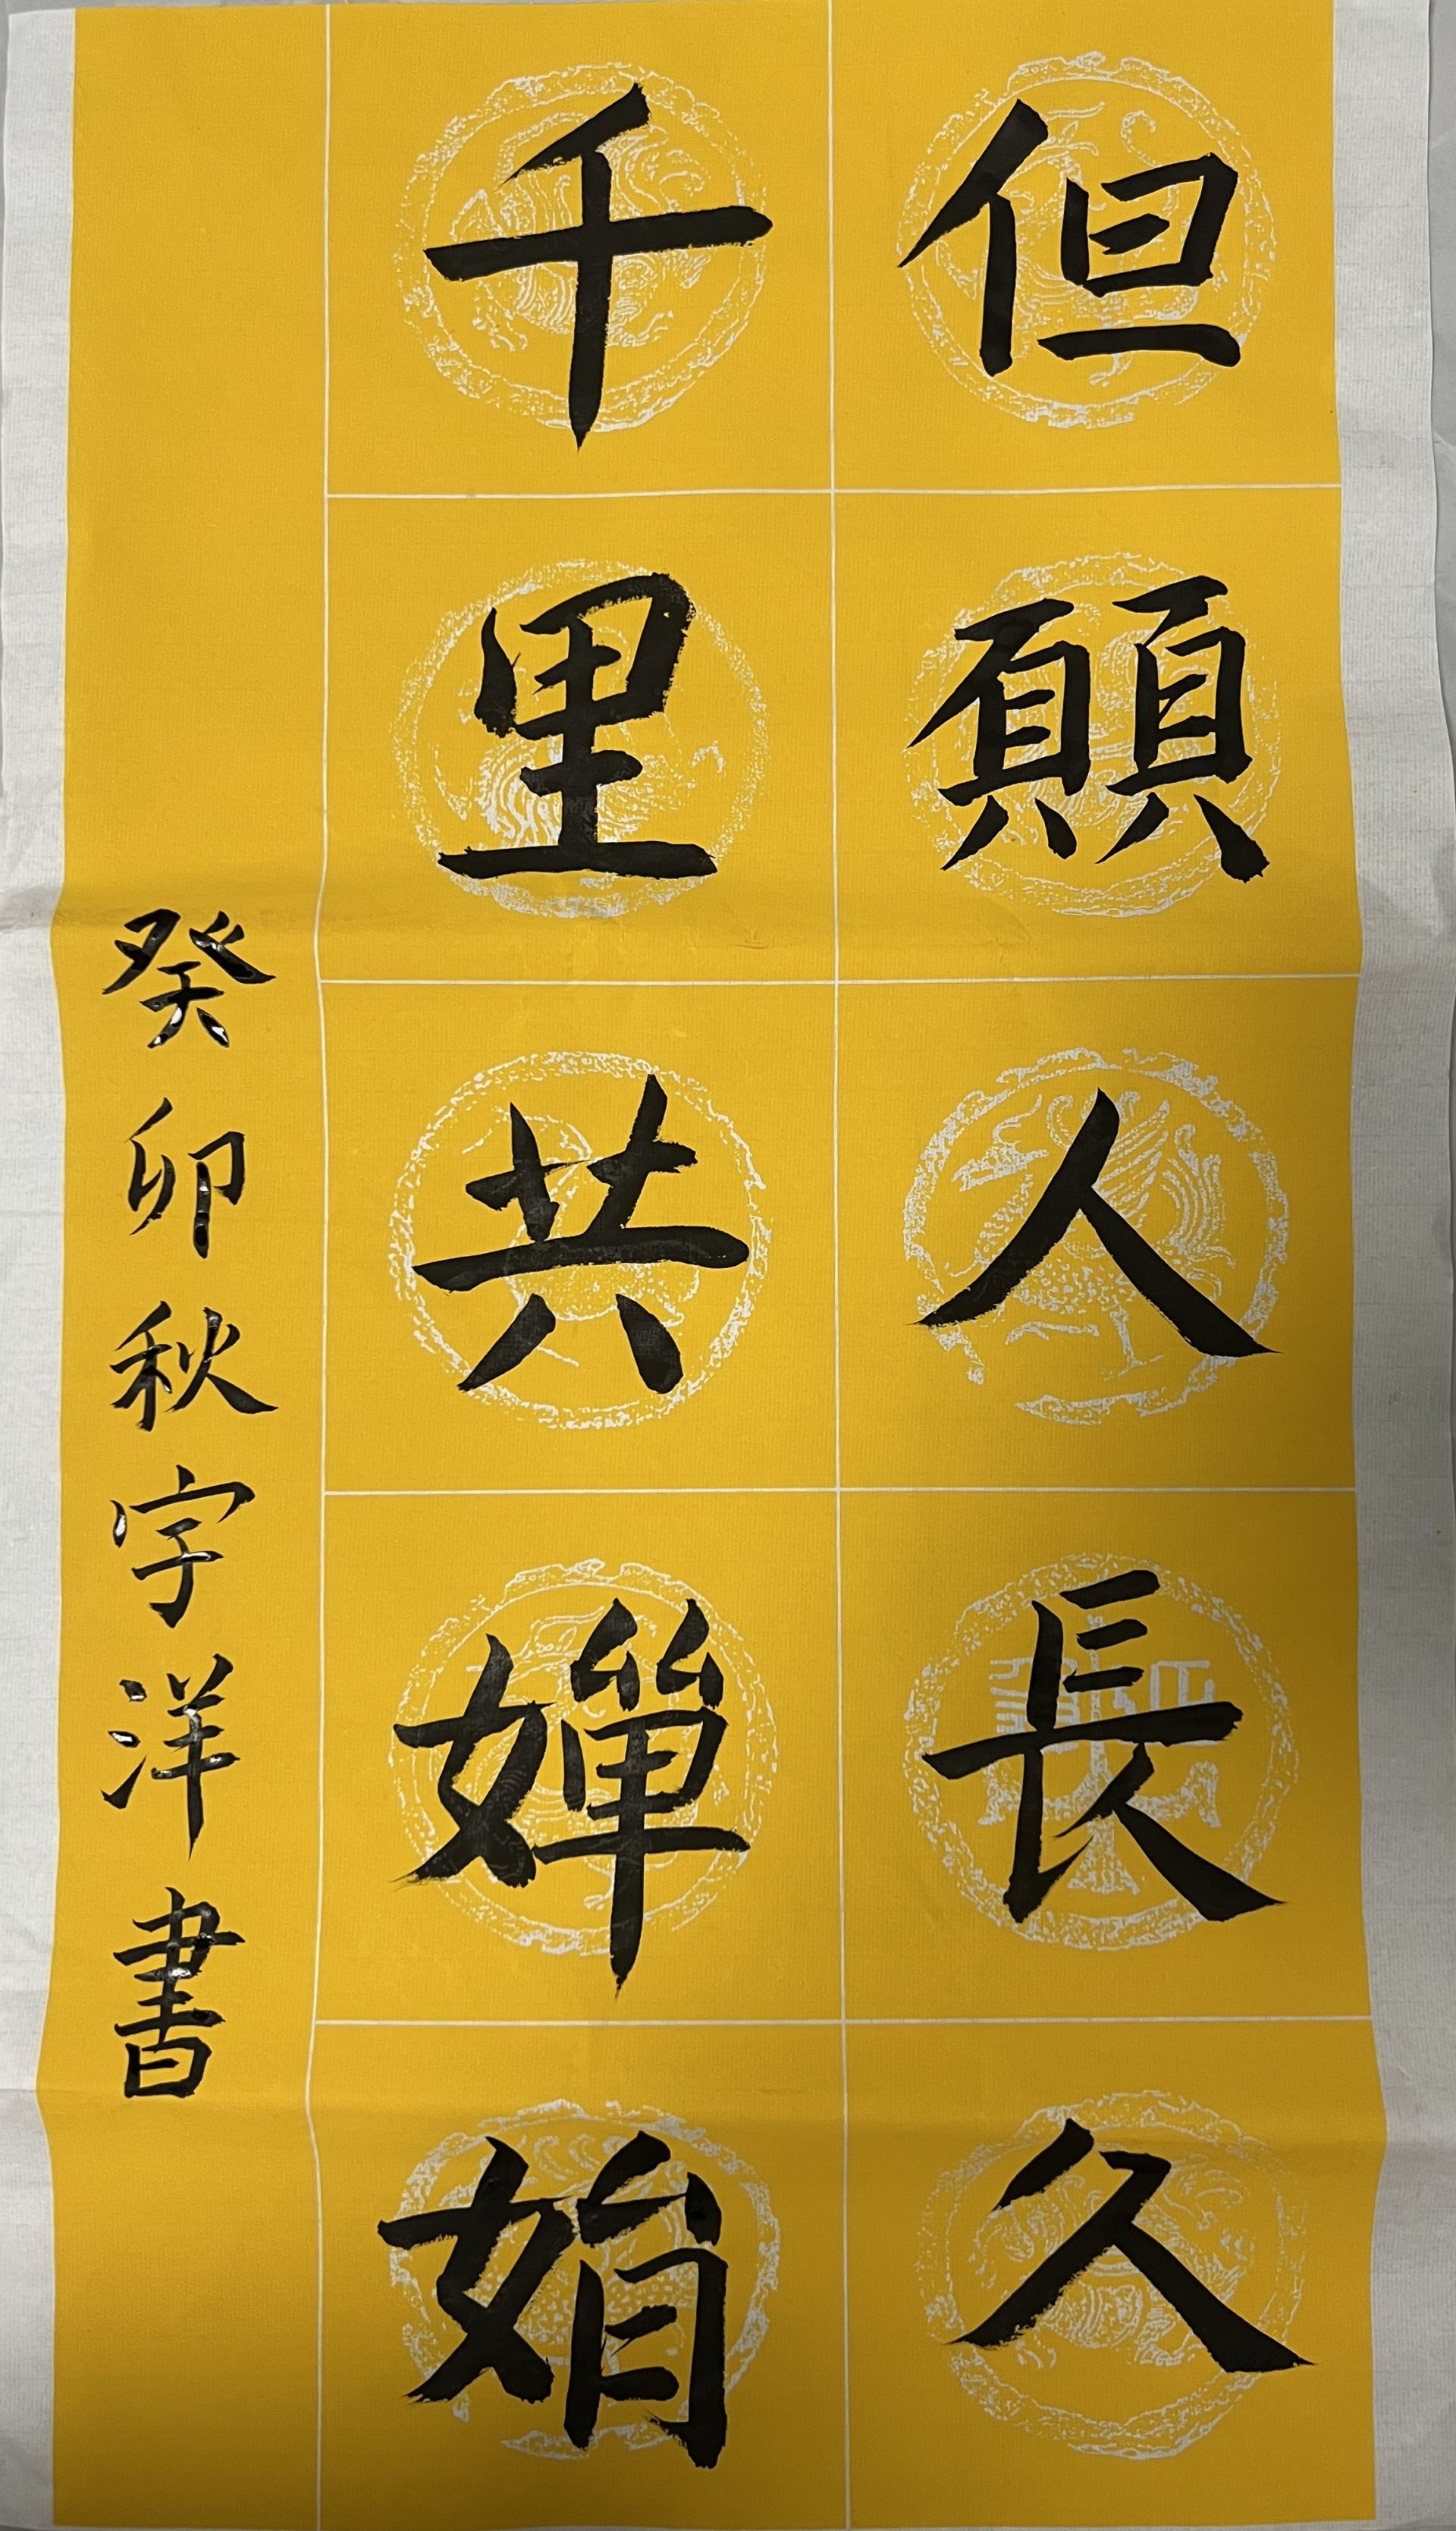 但願人長久
千里共嬋娟
癸卯秋宇洋書